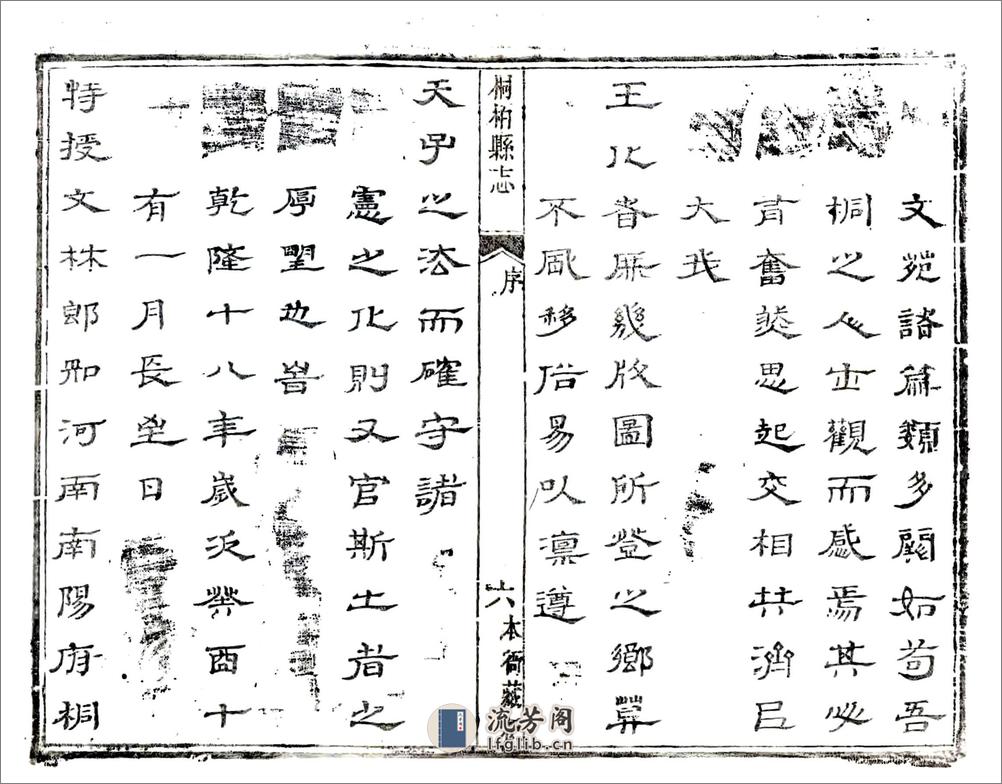 文苑諸篇類多闕如苟吾
桐之人士觀而感焉其必
有奮然思起交相共濟㠯
大我
王化者庶幾版圖所登之鄉
不風移俗易以凜遵
桐柏縣志
序
六
本衙藏
天子之法而確守諸
憲之化則又官斯土者之
厚望也旹
乾隆十八年歲次癸酉十
有一月長至日
特授文林郎知河南南陽府桐
流芳阁
lfglib.cn